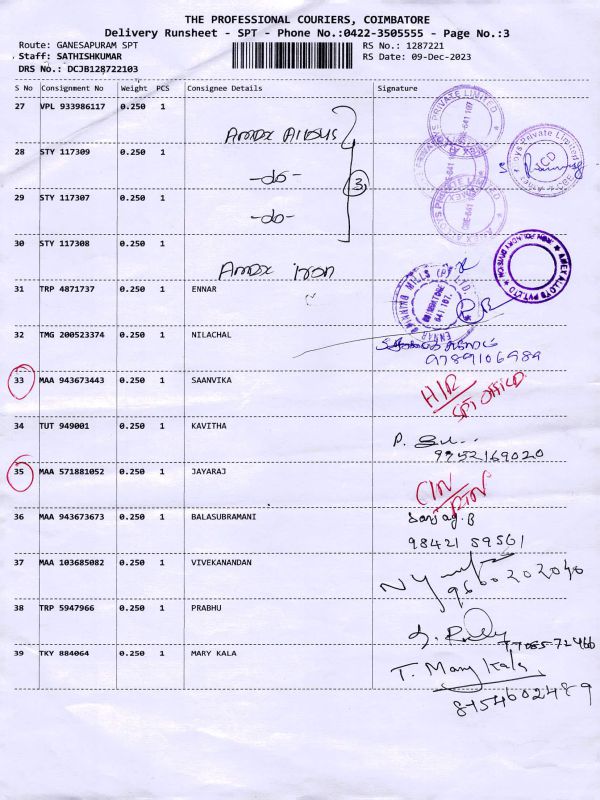 THE PROFESSIONAL COURIERS, COIMBATORE
Delivery Runsheet - SPT - Phone No.:0422-3505555 - Page No.:3
Route: GANESAPURAM SPT
Staff: SATHISHKUMAR
DRS No.: DCJB128722103
RS No.: 1287221
RS Date: 09-Dec-2023
S No Consignment No Weight PCS Consignee Details Signature
27 VPL 933986117 0.250 1
28 STY 117309 0.250 1 -do-
3
29 STY 117307 0.250 1 -do-
30 STY 117308 0.250 1
31 TRP 4871737 0.250 1 ENNAR
32 TMG 200523374 0.250 1 NILACHAL
9789106989
33 MAA 943673443 0.250 1 SAANVIKA
SPT OFFICE
34 TUT 949001 0.250 1 KAVITHA
9952169020
35 MAA 571881052 0.250 1 JAYARAJ
36 MAA 943673673 0.250 1 BALASUBRAMANI
98421 59561
37 MAA 103685082 0.250 1 VIVEKANANDAN
38 TRP 5947966 0.250 1 PRABHU
39 TKY 884064 0.250 1 MARY KALA
T. Mary Kala
8754602489